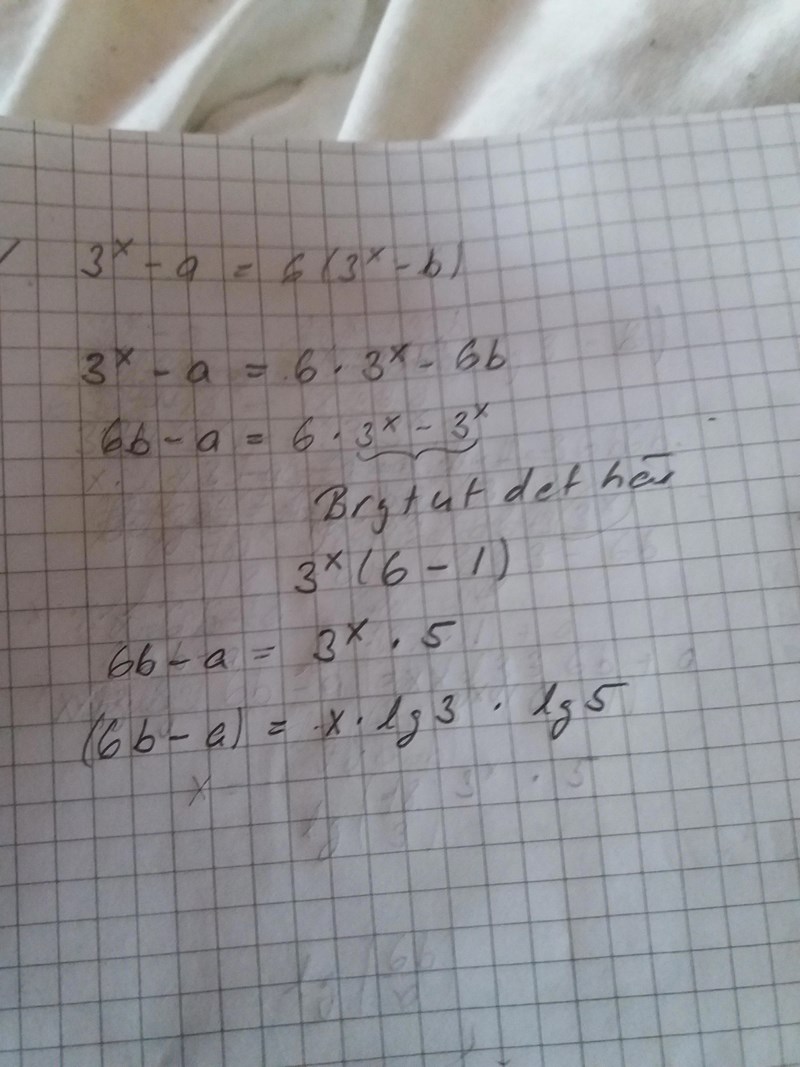 3ˣ - a = 6(3ˣ - b)
3ˣ - a = 6 · 3ˣ - 6b
6b - a = 6 · 3ˣ - 3ˣ
Brytut det här
3ˣ(6 - 1)
6b - a = 3ˣ · 5
(6b - a) = x · lg3 · lg5
x